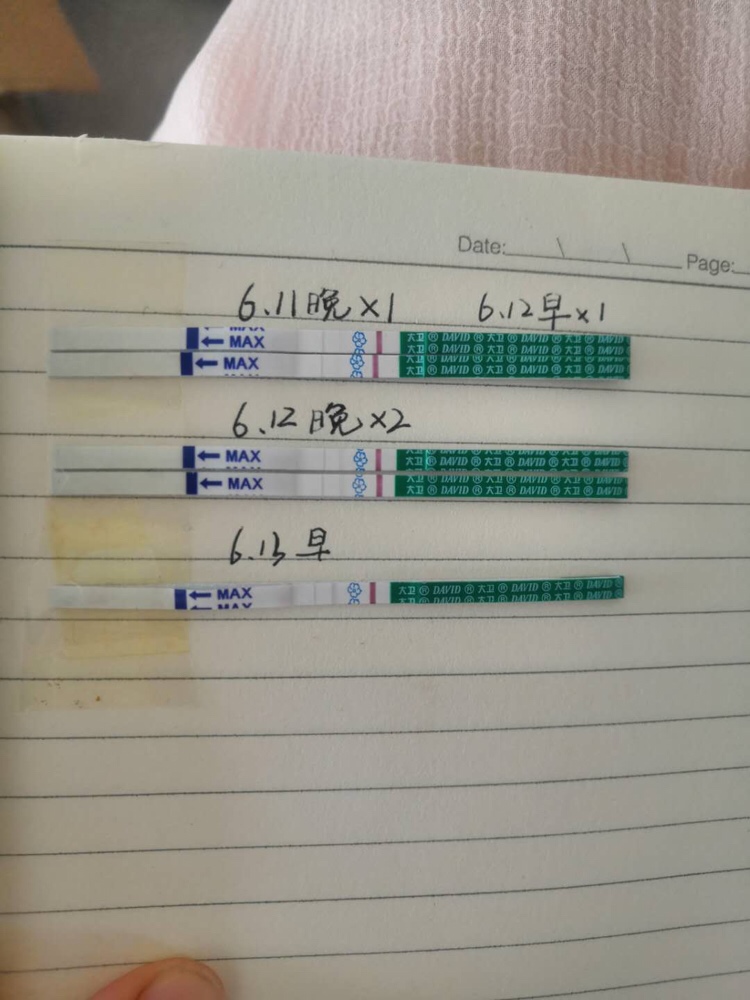 Date: \ \ Page:
6.11晚×1 6.12早×1
← MAX 大卫® DAVID® 大卫® DAVID® 大卫® DAVID®
← MAX 大卫® DAVID® 大卫® DAVID® 大卫® DAVID®
6.12晚×2
← MAX 大卫® DAVID® 大卫® DAVID® 大卫® DAVID
← MAX 大卫® DAVID® 大卫® DAVID® 大卫® DAVID
6.13早
← MAX 大卫® DAVID® 大卫® DAVID® 大卫® DAVID®